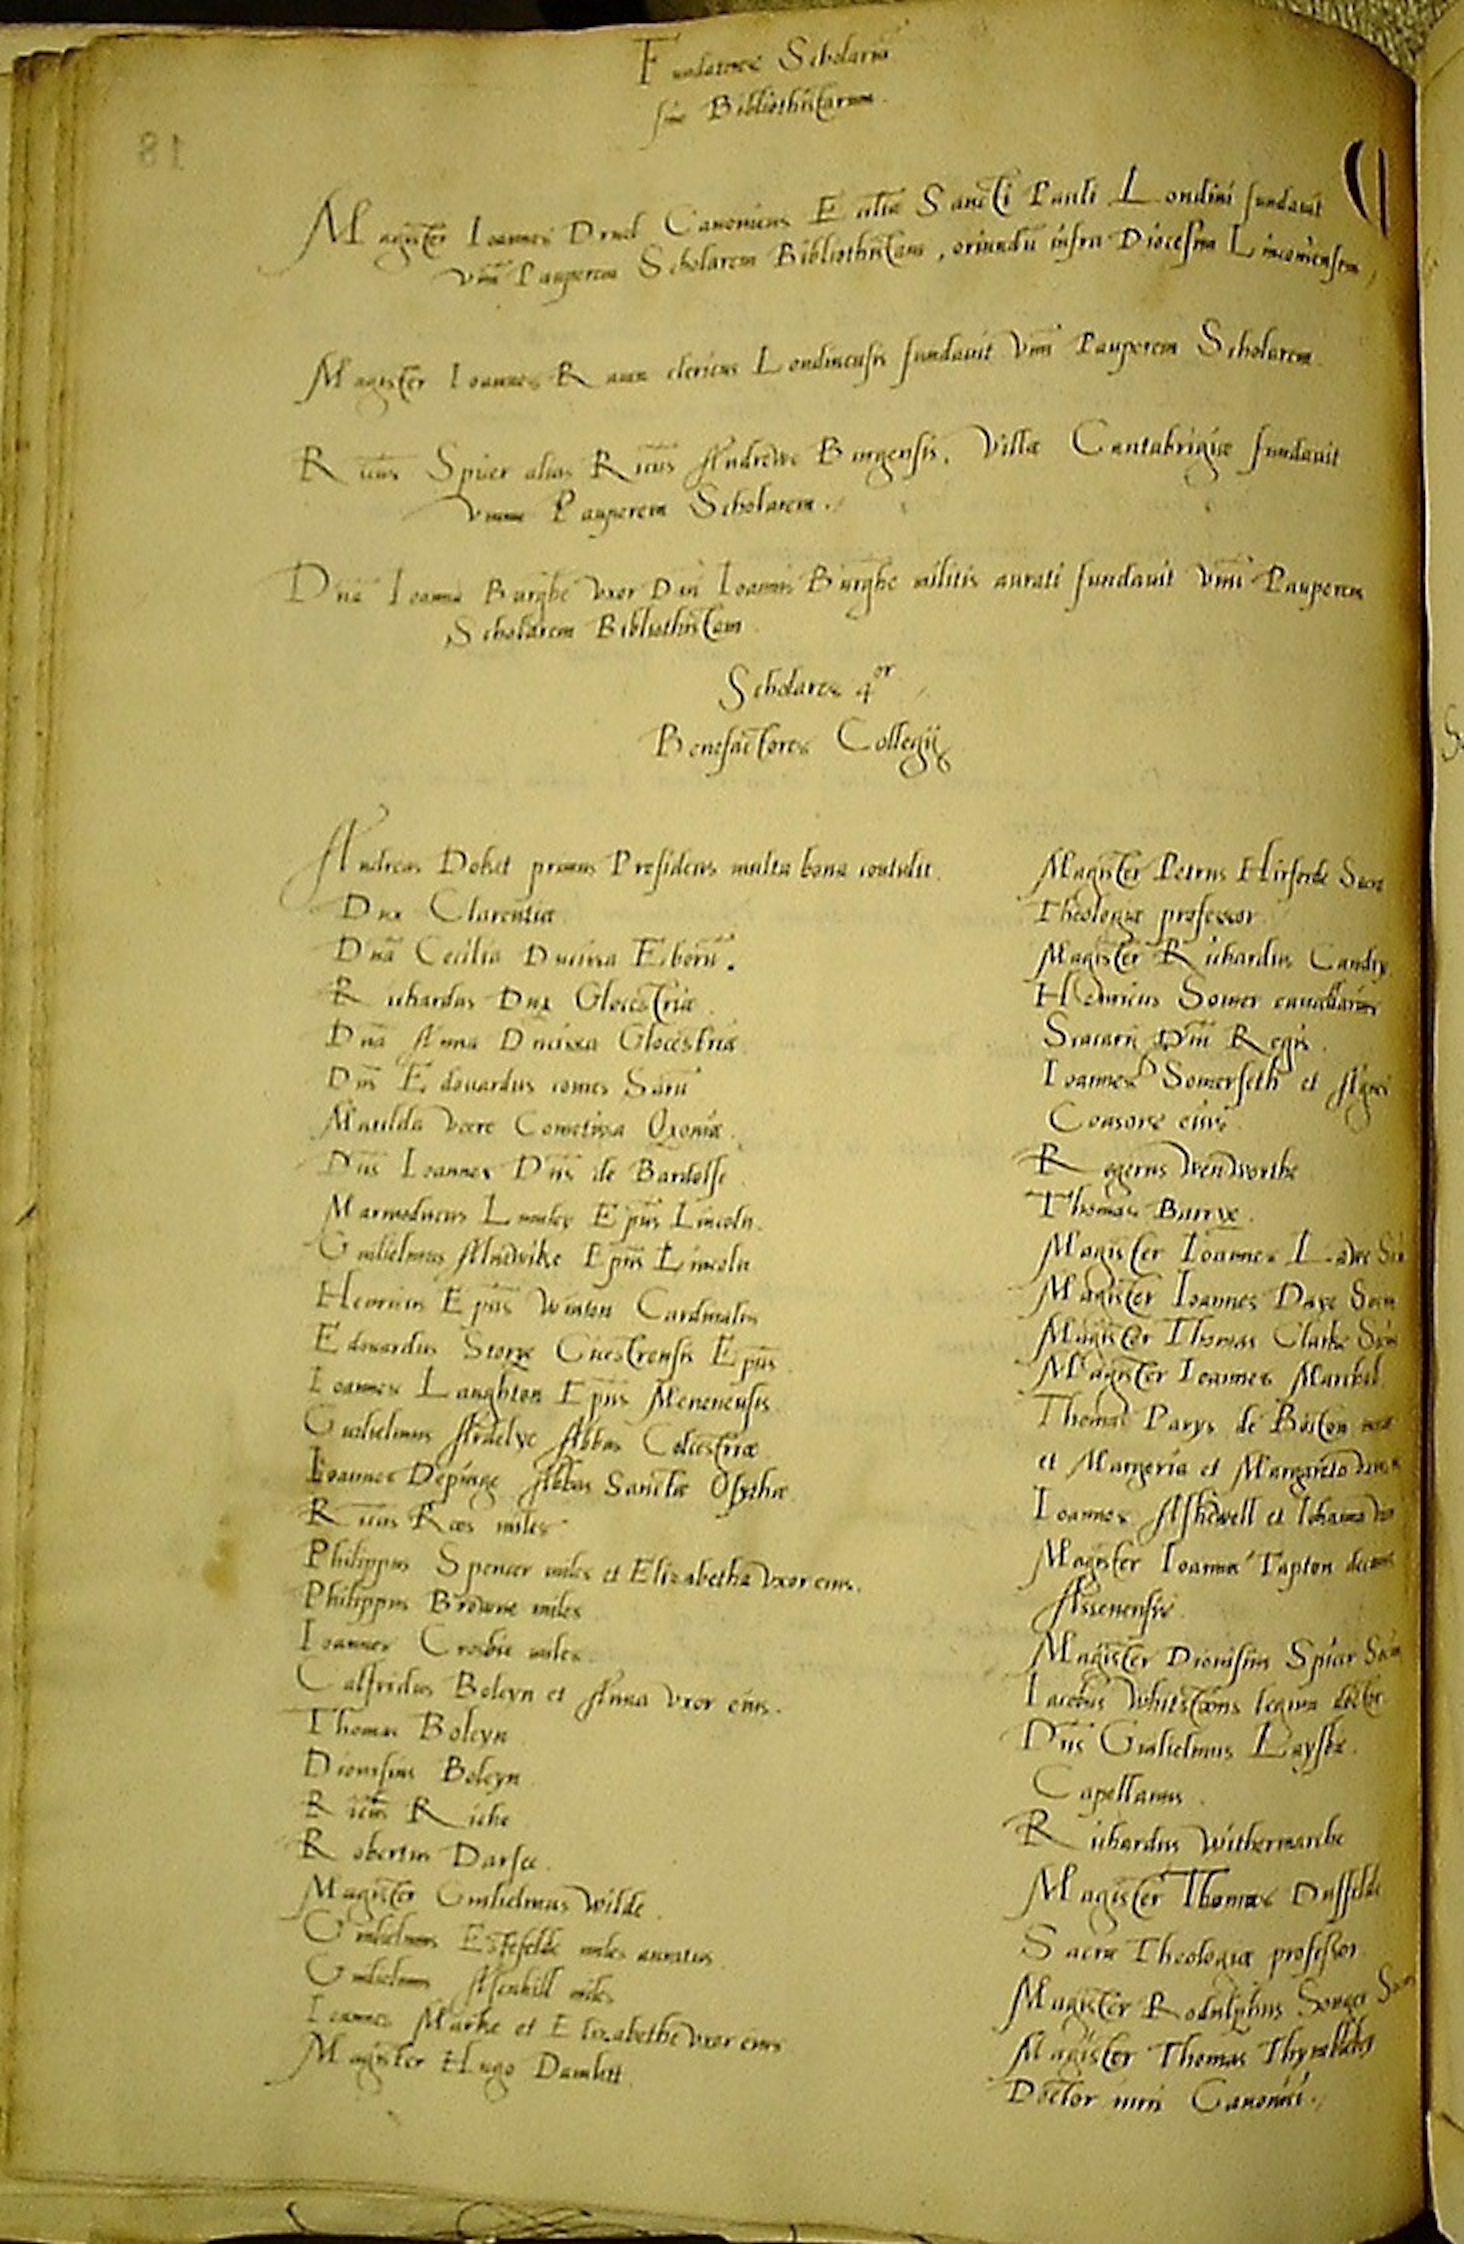 Fundatores Scholariũ
siue Bibliothistarum.
18
Magister Ioannes Druel Canonicus Ecctiæ Sancti Pauli Londini fundauit
vnũ Pauperem Scholarem Bibliothistam, oriundũ infra Diocesim Lincolniensem
Magister Ioannes Raun clericus Londinensis fundauit vnũ Pauperem Scholarem
Ricũs Spicer alias Ricũs Andrewe Burgensis, villæ Cantabrigiæ fundauit
vnum Pauperem Scholarem.
Dña Ioanna Burghe vxor Dñi Ioannis Burghe militis aurati fundauit vnũ Pauperem
Scholarem Bibliothistam.
Scholares 4or
Benefactores Collegij
Andreas Doket primus Presidens multa bona contulit.
Dux Clarentiæ
Dña Cecilia Ducissa Eborũ.
Richardus Dux Glocestriæ
Dña Anna Ducissa Glocestriæ
Dñs Edouardus comes Sarũ
Matilda veere Comitissa Oxoniæ.
Dñs Ioannes Dñs de Bardolfe
Marmaducus Lumley Epũs Lincoln.
Guilielmus Alnewike Epũs Lincoln
Henricus Epũs Winton Cardinalis
Edouardus Storye Cicestrensis Epũs.
Ioannes Langhton Epũs Menenensis
Guilielmus Ardelye Abbas Colcestriæ
Ioannes Depinge Abbas Sanctæ Osythæ
Ricũs Roos miles
Philippus Spencer miles et Elizabetha vxor eius.
Philippus Browne miles
Ioannes Crosbie miles.
Galfridus Boleyn et Anna vxor eius.
Thomas Boleyn
Dionisius Boleyn
Ricũs Riche
Robertus Darsce.
Magister Guilielmus Wilde
Guilielmus Estefelde miles auratus
Guilielmus Asenhill miles
Ioannes Marke et Elizabethe vxor eius
Magister Hugo Damlett
Magister Petrus Hirforde Sacre
Theologiæ professor
Magister Richardus Caudry
Henricus Somer cancellarius
Scacarij Dñi Regis.
Ioannes Somerseth et Agnes
Consors eius.
Rogerus Wentworthe
Thomas Barrye.
Magister Ioannes Lawe
Magister Ioannes Daye
Magister Thomas Clarke
Magister Ioannes
Thomas Parys de
et Margeria et Margareta
Ioannes Ashewell et Iohanna
Magister Ioannes Tapton
Assenensis.
Magister Dionisius Spicer
Iacobus Whitstons legum doctor
Dñs Guilielmus Layste.
Capellanus.
Richardus Withermarshe
Magister Thomas Duffelde
Sacræ Theologiæ professor
Magister Rodulphus Songer
Magister Thomas
Doctor iuris Canonici.